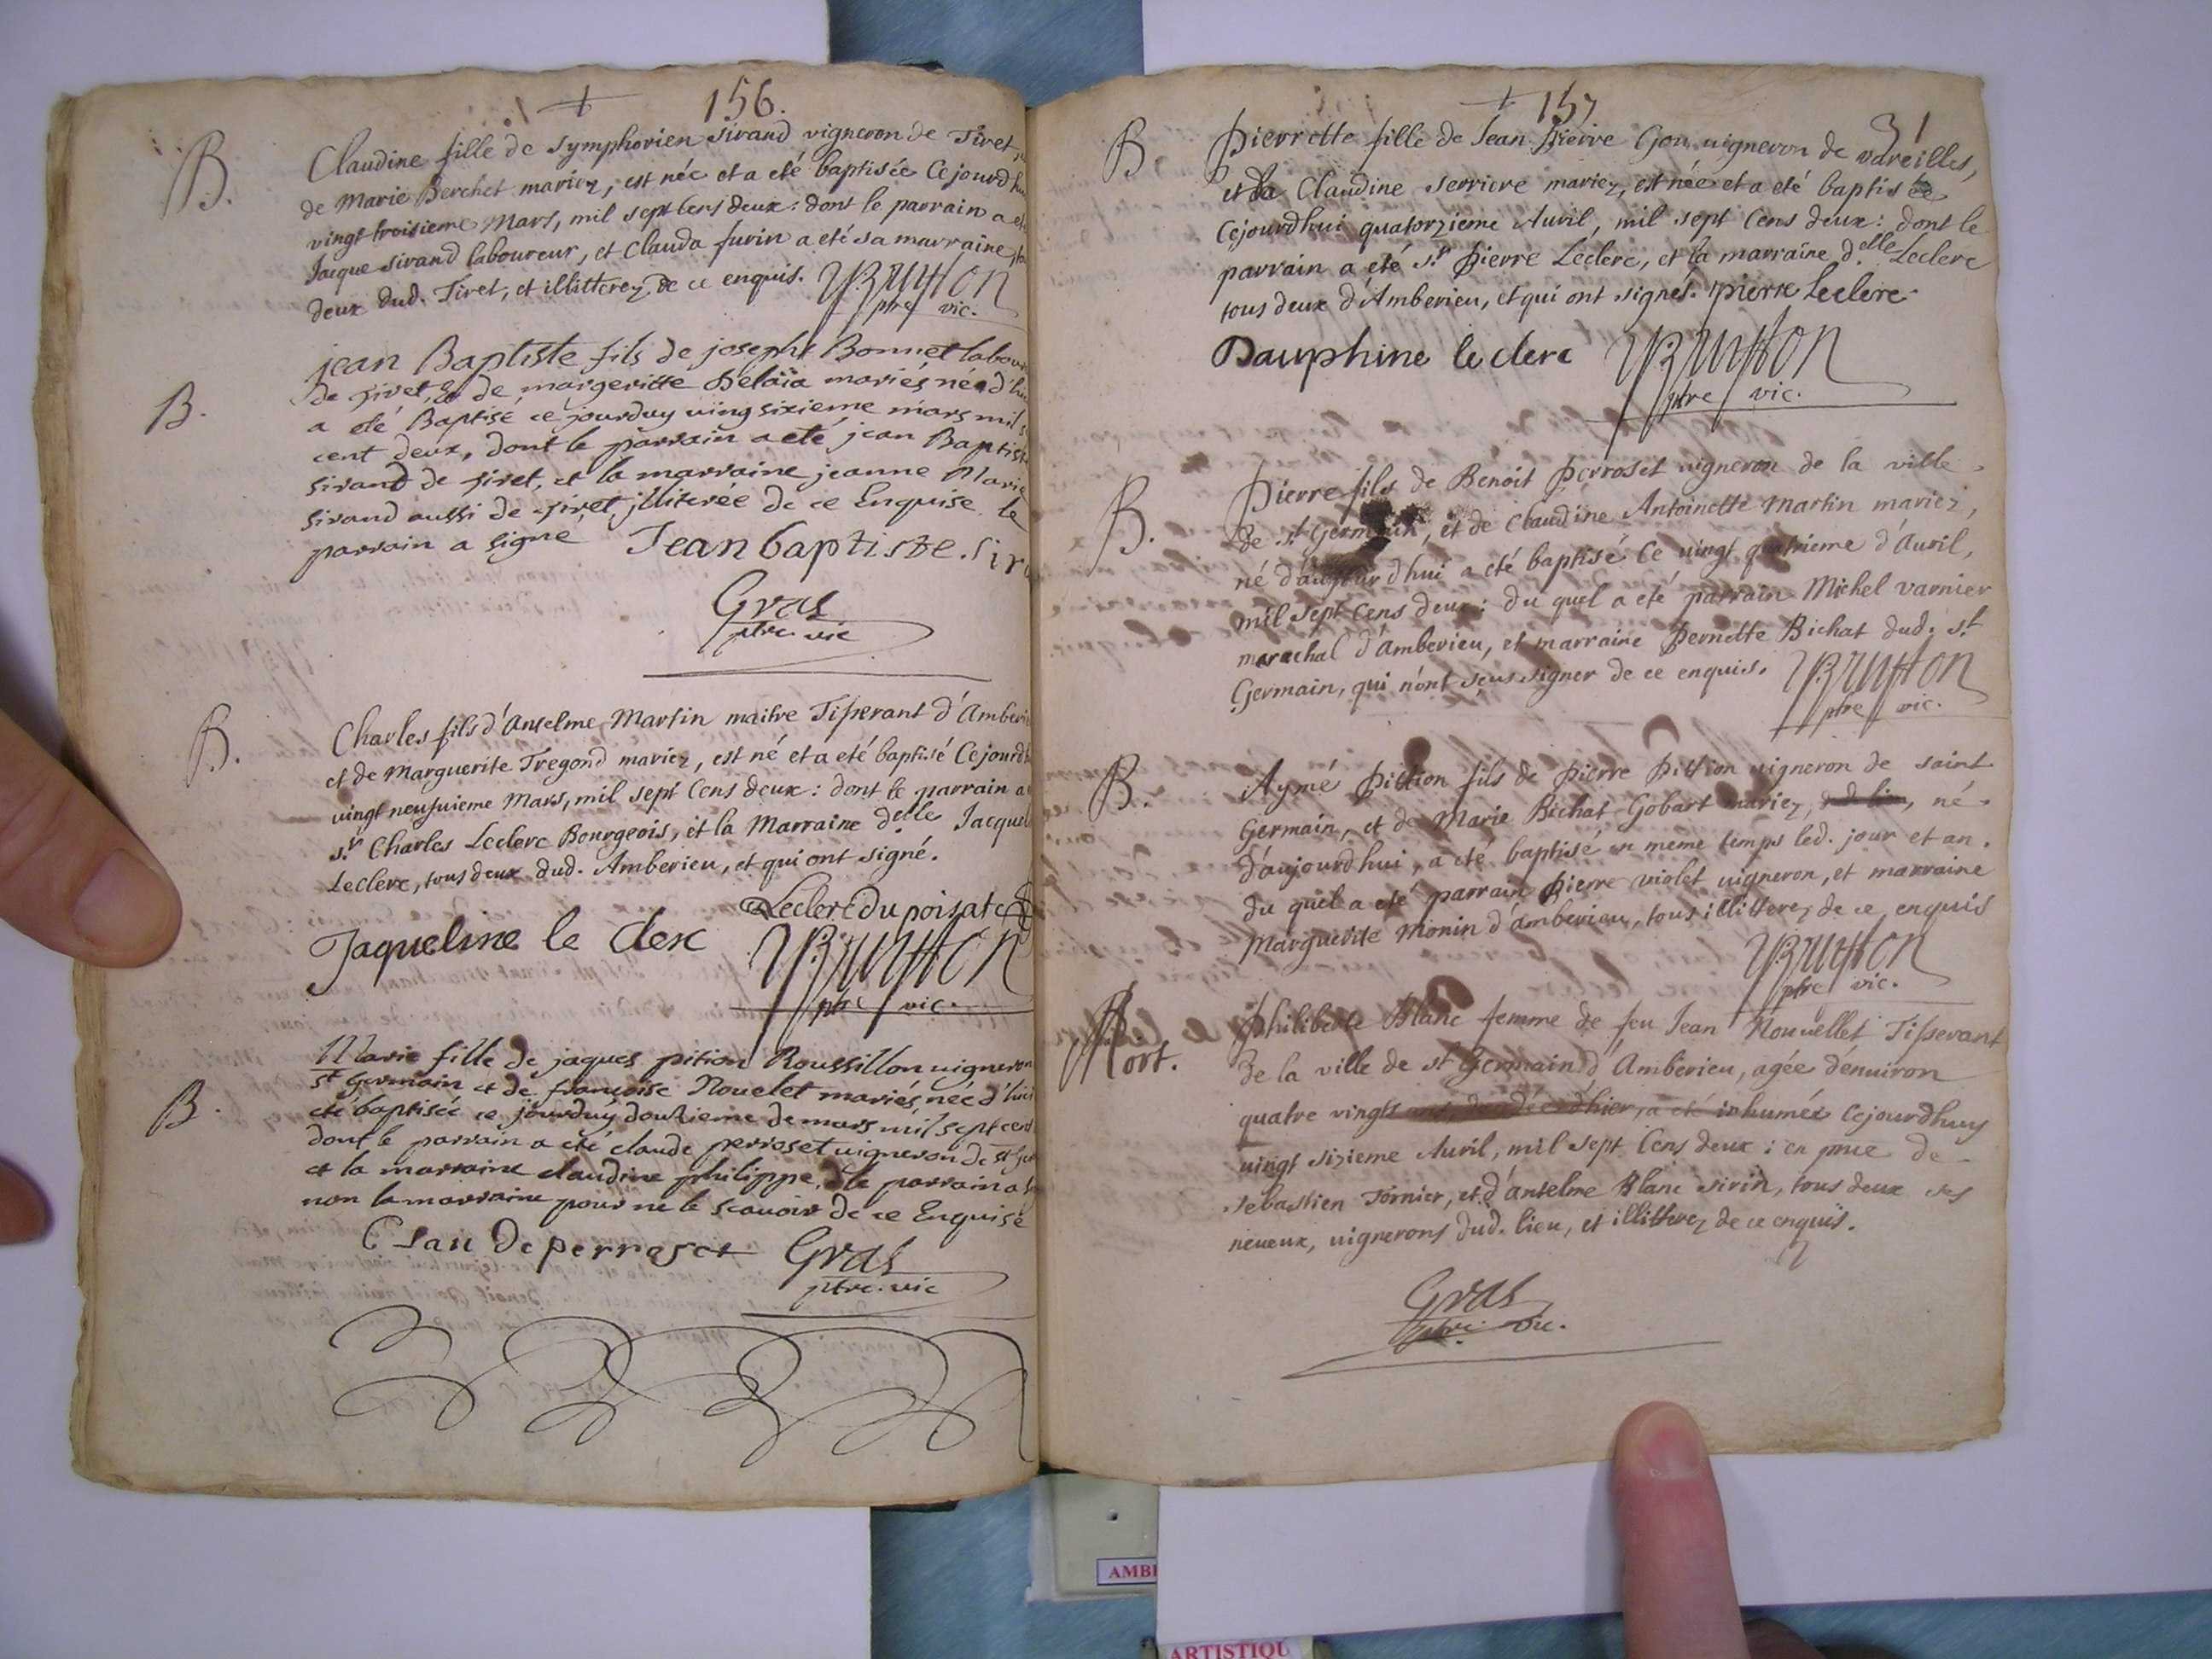 156.
B.
Claudine fille de Symphorien Sirand vigneron de Tiret,
de Marie Berchet mariez, est née et a eté baptisée Cejourd'hui
vingt troisieme Mars, mil sept Cens deux : dont le parrain a eté
Jacque Sirand laboureur, et Clauda furin a eté sa marraine,
deux dud. Tiret, et illitterez de ce enquis.
ptre vic.
B.
jean Baptiste fils de joseph Bonnet labou
de tiret, & de margeritte Delaïa mariés né d'hui
a eté Baptisé ce jourduy uing sixieme mars mil s
cent deux, dont le parrain a eté jean Baptiste
sirand de tiret, et la marraine jeanne Marie
sirand aussi de tiret, jlliterée de ce Enquise le
parrain a signé Jean baptiste. Sir
Gras
ptre. vic
B.
Charles fils d'Anselme Martin maitre Tisserant d'Amberi
et de Marguerite Tregond mariez, est né et a eté baptisé Cejourdh
vingt neufuieme Mars, mil sept Cens deux : dont le parrain a
s.r Charles Leclerc Bourgeois, et la Marraine d.elle Jacquel
Leclerc, tous deux dud. Amberieu, et qui ont signé.
Leclerc Du poisat
Jaqueline le clerc
ptre vic.
B.
Marie fille de jaques pition Roussillon uigneron
st Germain et de françoise Nouelet mariés, née d'hui
eté baptisée ce jourduy douzieme de mars mil sept cent
dont le parrain a eté claude perroset uigneron de st Ger
et la marraine claudine philippe, le parrain a s
non la marraine pour ne le scauoir de ce Enquise
Claude perroset Gras
ptre. vic
157
31
B.
Pierrette fille de Jean Pierre Gon vigneron de vareilles,
et de Claudine Serriere mariez, est née et a eté baptisée
Cejourdhui quatorzieme Auril, mil sept Cens deux : dont le
parrain a été s.r Pierre Leclerc, et la marraine d.elle Leclerc
tous deux d'Amberieu, et qui ont signés. pierre leclerc
Dauphine le clerc
ptre vic.
B.
Pierre fils de Benoit Perroset uigneron de la ville
de st Germain, et de Claudine Antoinette Martin mariez,
né d'aujourdhui a eté baptisé Ce uingt quatrieme d'Auril,
mil sept Cens deux : du quel a eté parrain Michel Varnier
marechal d'Amberieu, et marraine Pernette Bichat dud. st
Germain, qui n'ont sçeus signer de ce enquis.
ptre vic.
B.
Aymé Pittion fils de Pierre Pittion uigneron de saint
Germain, et de Marie Bichat Gobart mariez, né
d'aujourdhui, a eté baptisé en meme temps led. jour et an.
du quel a eté parrain Pierre violet uigneron, et marraine
Marguerite Monin d'amberieu, tous illitterez de ce enquis
ptre vic.
Mort.
Philiberte Blanc femme de feu Jean Nouuellet Tisserant
de la ville de st Germain d'Amberieu, agée d'enuiron
quatre vingts ans, décedée d'hier, a eté inhumée Cejourdhuy
uingt sizieme Auril, mil sept Cens deux : en pñce de
Sebastien Tornier, et d'anselme Blanc Sirin, tous deux ses
neueux, uignerons dud. lieu, et illitterez de ce enquis.
Gras
ptre. vic.
AMB
ARTISTIQU